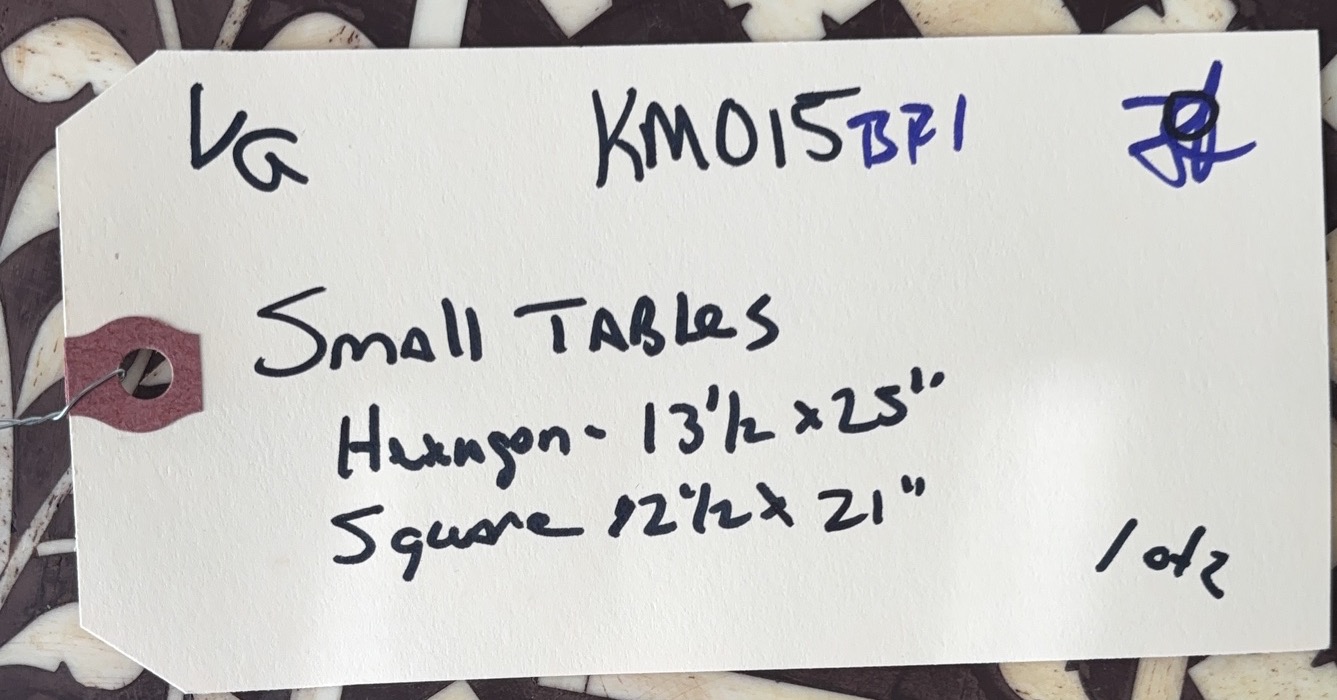 VG KM015BF1
Small TABles
Hexagon - 13 1/2 x 25"
Square 12 1/2 x 21"
1 of 2